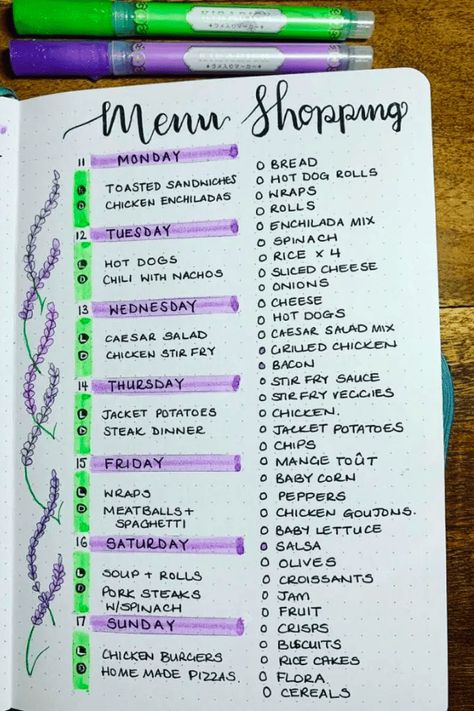 Menu
11 MONDAY
L TOASTED SANDWICHES
D CHICKEN ENCHILADAS
12 TUESDAY
L HOT DOGS
D CHILI WITH NACHOS
13 WEDNESDAY
L CAESAR SALAD
D CHICKEN STIR FRY
14 THURSDAY
L JACKET POTATOES
D STEAK DINNER
15 FRIDAY
L WRAPS
D MEATBALLS +
SPAGHETTI
16 SATURDAY
L SOUP + ROLLS
D PORK STEAKS
W/SPINACH
17 SUNDAY
L CHICKEN BURGERS
D HOME MADE PIZZAS.
Shopping
BREAD
HOT DOG ROLLS
WRAPS
ROLLS
ENCHILADA MIX
SPINACH
RICE x 4
SLICED CHEESE
ONIONS
CHEESE
HOT DOGS
CAESAR SALAD MIX
GRILLED CHICKEN
BACON
STIR FRY SAUCE
STIR FRY VEGGIES
CHICKEN.
JACKET POTATOES
CHIPS
MANGE TOÛT
BABY CORN
PEPPERS
CHICKEN GOUJONS.
BABY LETTUCE
SALSA
OLIVES
CROISSANTS
JAM
FRUIT
CRISPS
BUSCUITS
RICE CAKES
FLORA
CEREALS